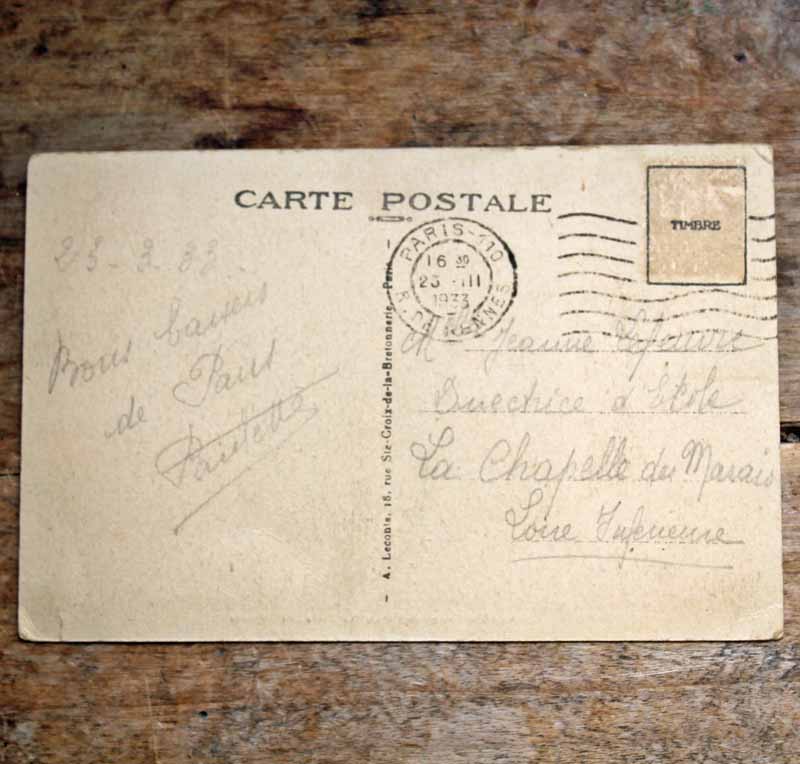 CARTE POSTALE
TIMBRE
PARIS-110
16 30
23 -III
1933
R. DE RENNES
23-3-33.
Bons baisers
de Paris
Paulette
- A. Leconte, 18, rue Ste-Croix-de-la-Bretonnerie, Paris -
Jeanne
Directrice d'Ecole
La Chapelle des Marais
Loire Inférieure